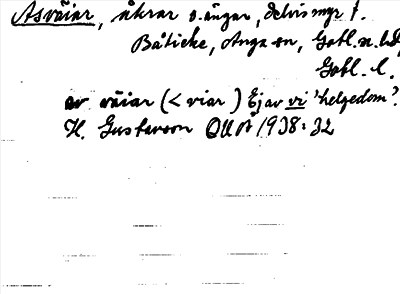 Asväiar, åkrar o. ängar, delvis myr f.
Båticke, Anga sn, Gotl. n. hd,
Gotl. l.
av väiar (< viar) Ej av vi 'helgedom'?
H. Gustavson OUOÅ 1938: 32